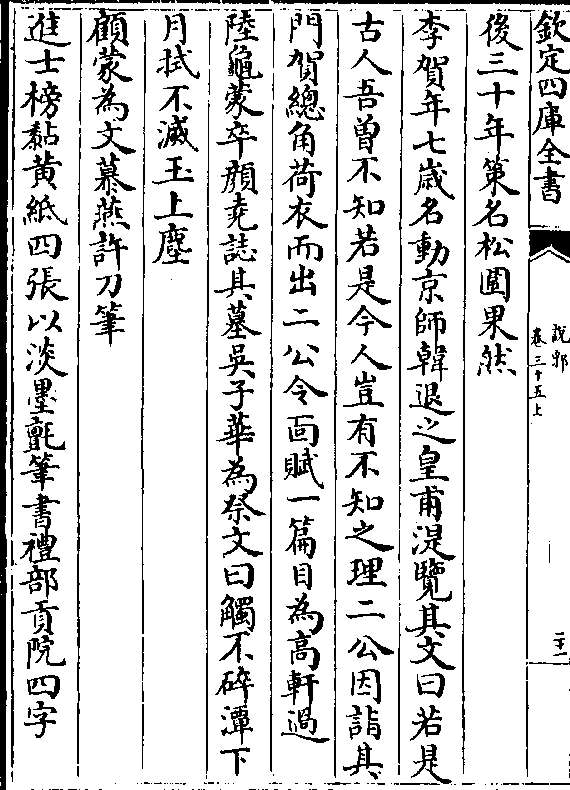 欽定四庫全書
說郛
卷三十五上
二十一
後三十年第名松圍果然
李賀年七歳名動京師韓退之皇甫湜覽其文曰若是
古人吾曽不知若是今人豈有不知之理二公因詣其
門賀總角荷衣而出二公令面賦一篇目為高軒過
陸龜蒙卒顔蕘誌其墓吳子華為祭文曰觸不碎潭下
月拭不滅玉上塵
顧蒙為文慕燕許刀筆
進士榜黏黄紙四張以淡墨氈筆書禮部貢院四字